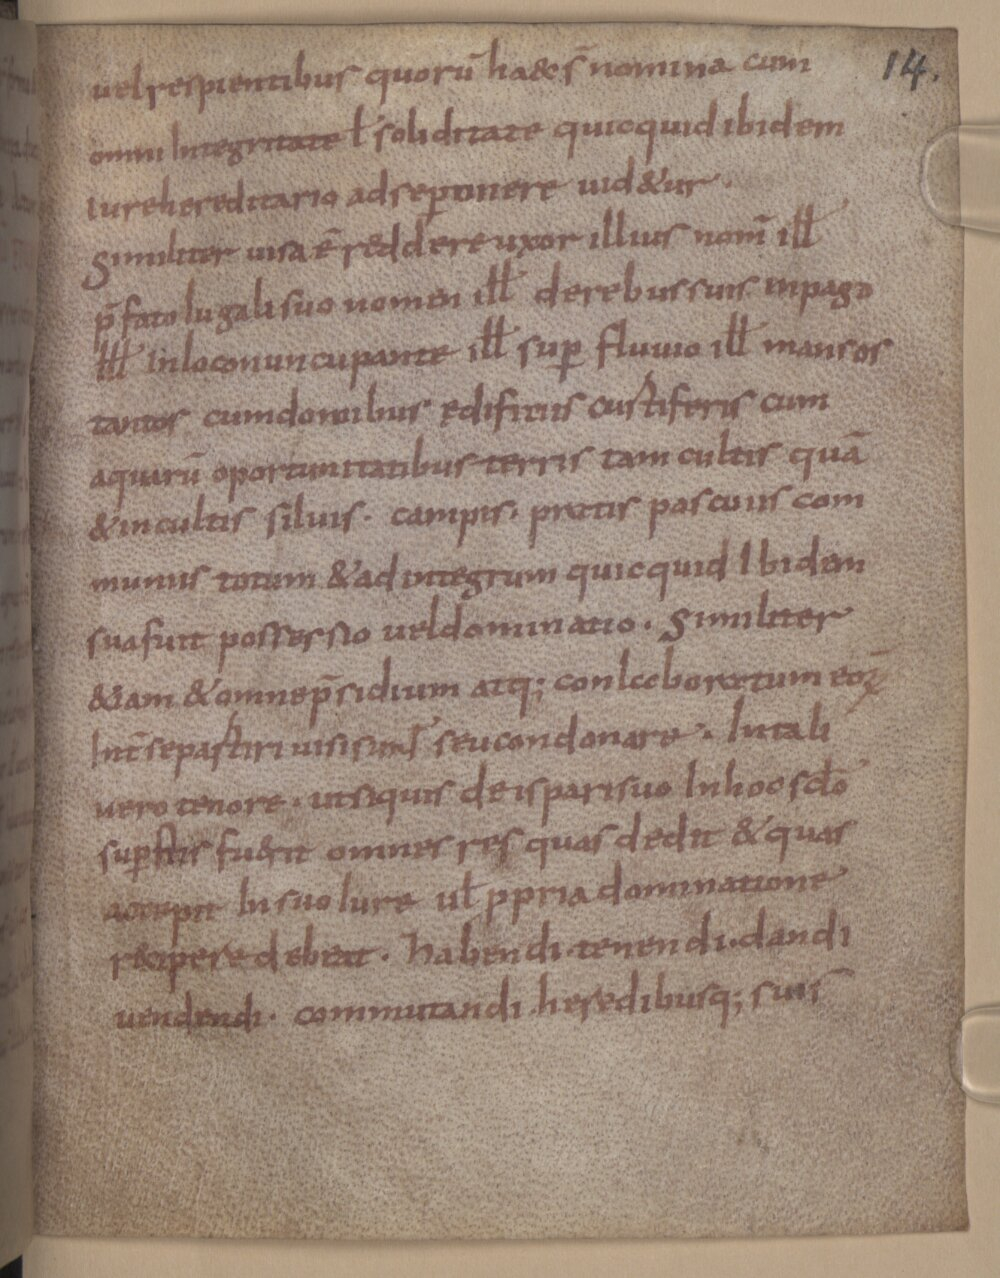 14.
uel respientibus quorū ha&cs̄ nomina cum
omni Integritate ł soliditate quicquid ibidem
Iure hereditario adseptonere uid&ur.
Similiter uisa ē reddere uxor illius nom̄ ill
p̄fato Iugali suo nomen ill de rebus suis inpago
ill Inloco nuncupante ill sup fluuio ill mansos
tantos cum domibus edificiis custiferis cum
aquarū oportunitatibus terris tam cultis quā
& incultis siluis. campis. pratis pascuis com
munis totum & ad integrum quicquid Ibidem
sua fuit possessio uel dominatio. Similiter
&iam & omne p̄sidium atq; conlaboratum eoꝝ
Int̄ se partiri uisi sunt seu condonare. Intali
uero tenore. ut siquis de is pari suo In hoc sclō
supstis fuerit omnes res quas dedit & quas
accepit In suo Iure ul ppria dominatione
recipere debeat. habendi. tenendi. dandi
uendendi. commutandi. heredibusq; suis